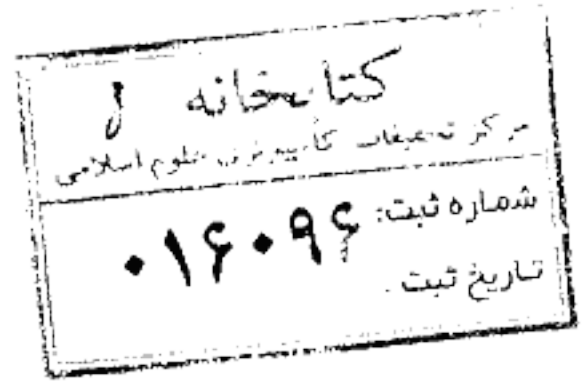 کتابخانه
مرکز تحقیقات کامپیوتری علوم اسلامی
شماره ثبت: ۰۱۶۰۹۶
تاریخ ثبت